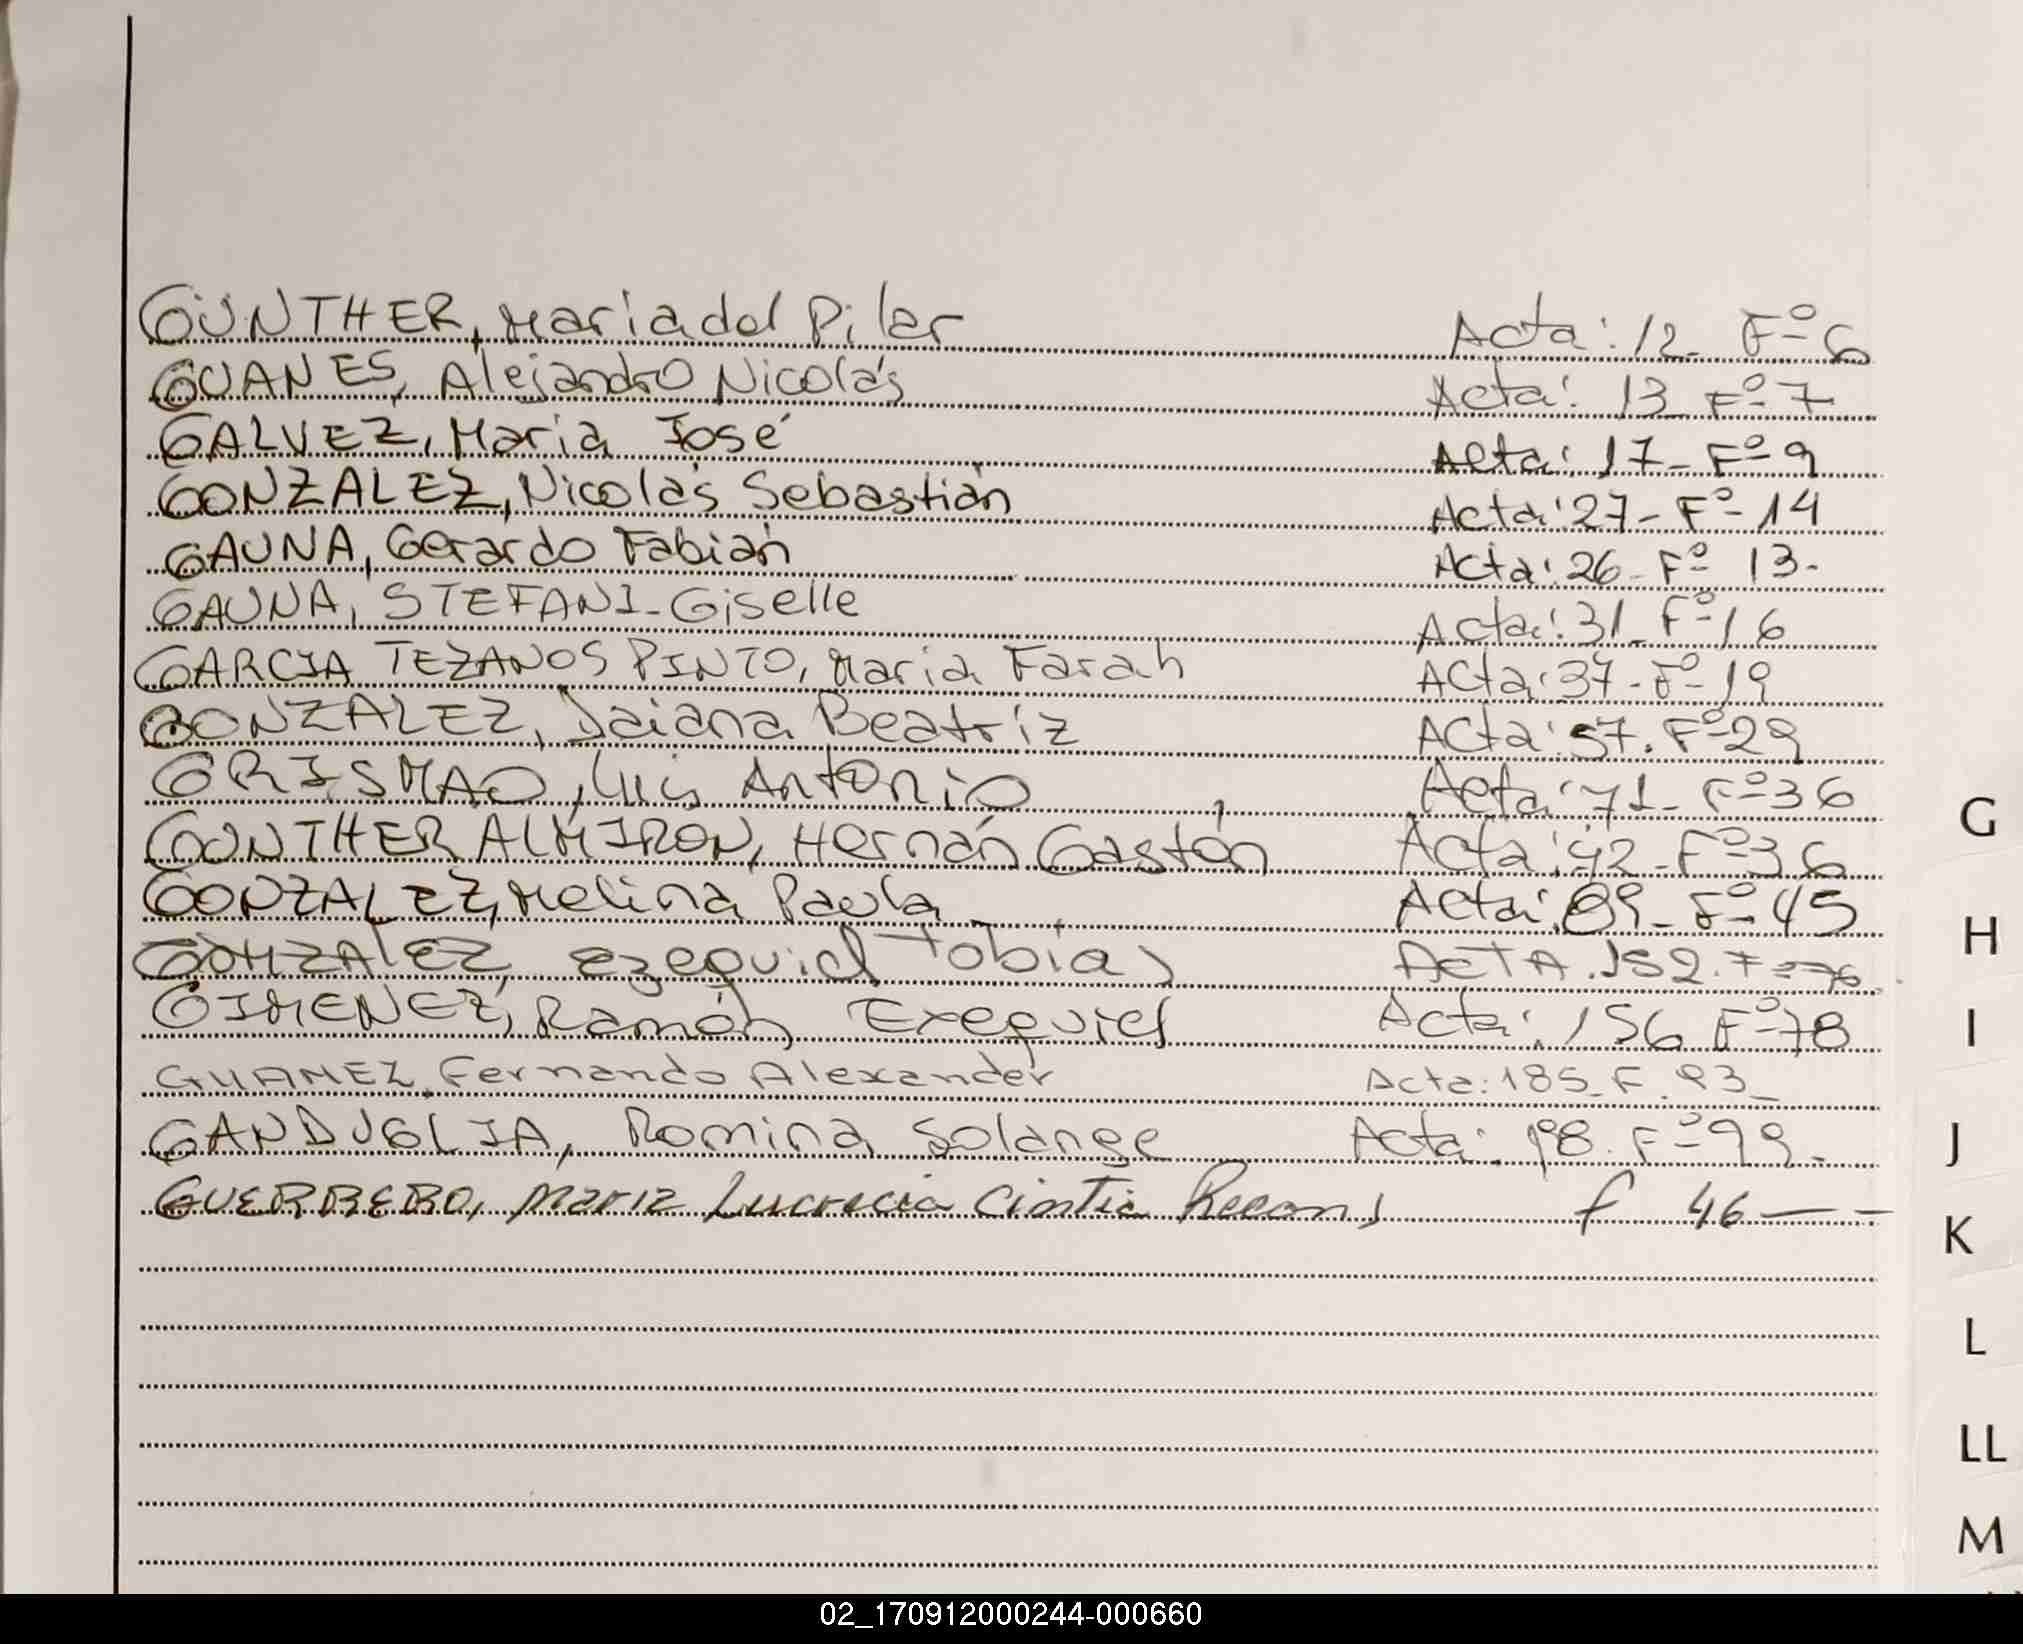 GÜNTHER, Maria del Pilar Acta: 12 - Fº 6
GUANES, Alejandro Nicolás Acta: 13 Fº 7
GALVEZ, Maria José Acta: 17 - Fº 9
GONZALEZ, Nicolás Sebastián Acta: 27 - Fº 14
GAUNA, Gerardo Fabián Acta: 26 - Fº 13 -
GAUNA, STEFANI - Giselle Acta: 31 - Fº 16
GARCIA TEZANOS PINTO, Maria Farah Acta: 37 - Fº 19
GONZALEZ, Daiana Beatríz Acta: 57. Fº 29
GRISMAO, Luis Antonio Acta: 71 - Fº 36
GUNTHER ALMIRON, Hernán Gastón Acta: 72 - Fº 36
GONZALEZ, Melina Paola Acta: 89 - Fº 45
GONZALEZ, Ezequiel Tobias ACTA. 152. Fº 76
GIMENEZ, Ramón Exequiel Acta: 156 Fº 78
GUANEZ, Fernando Alexander Acta: 185 - F. 93 -
GANDUGLIA, Romina Solange Acta: 198. Fº 99.
GUERRERO, Maria Lucrecia Cintia f 46 —
G
H
I
J
K
L
LL
M
02_170912000244-000660